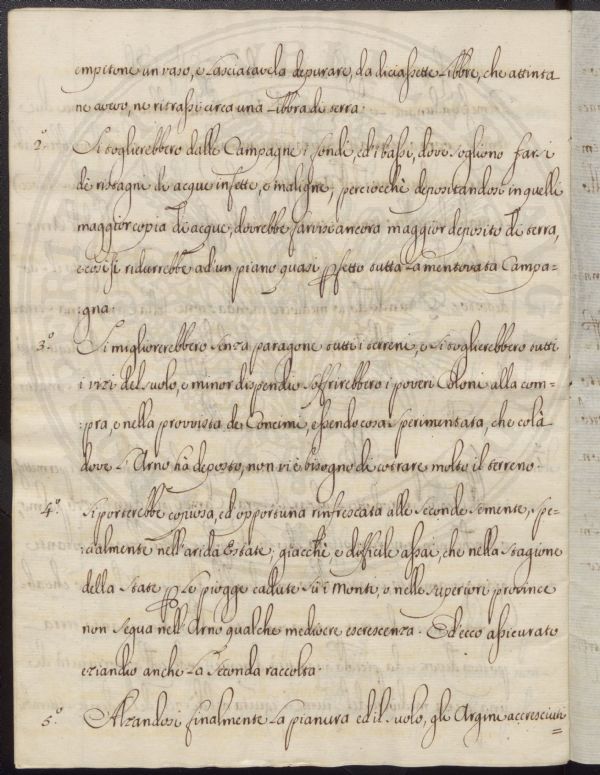 empitone un vaso, e lasciatavela depurare, da diciassette Libbre, che attinta
ne avevo, ne ritrassi circa una Libbra di terra.
2.° Si toglierebbero dalle Campagne i fondi, ed i bassi, dove sogliono farsi
de ristagni di acque infette, e maligne, perciocchè depositandosi in quelli
maggior copia di acque, dovrebbe farvisi ancora maggior deposito di terra,
e così si ridurrebbe ad un piano quasi pfetto tutta la mentovata Campa=
:gna.
3.° Si migliorerebbero senza paragone tutti i terreni, e si toglierebbero tutti
i vizi del suolo, e minor dispendio soffrirebbero i poveri Coloni alla com=
:pra, e nella provvista de Concimi, essendo cosa sperimentata, che colà
dove l'Arno hà deposto, non vi è bisogno di cotrare molto il terreno.
4.° Si porterebbe copiosa, ed opportuna rinfrescata alle seconde semente, spe=
:cialmente nell'arida Estate; giacchè è difficile assai, che nella stagione
della state p le piogge cadute sù i Monti, o nelle superiori province
non segua nell'Arno qualche mediocre escrescenza. Ed ecco assicurato
eziandio anche la seconda raccolta.
5.° Alzandosi finalmente la pianura ed il suolo, gli Argini accresciuti=